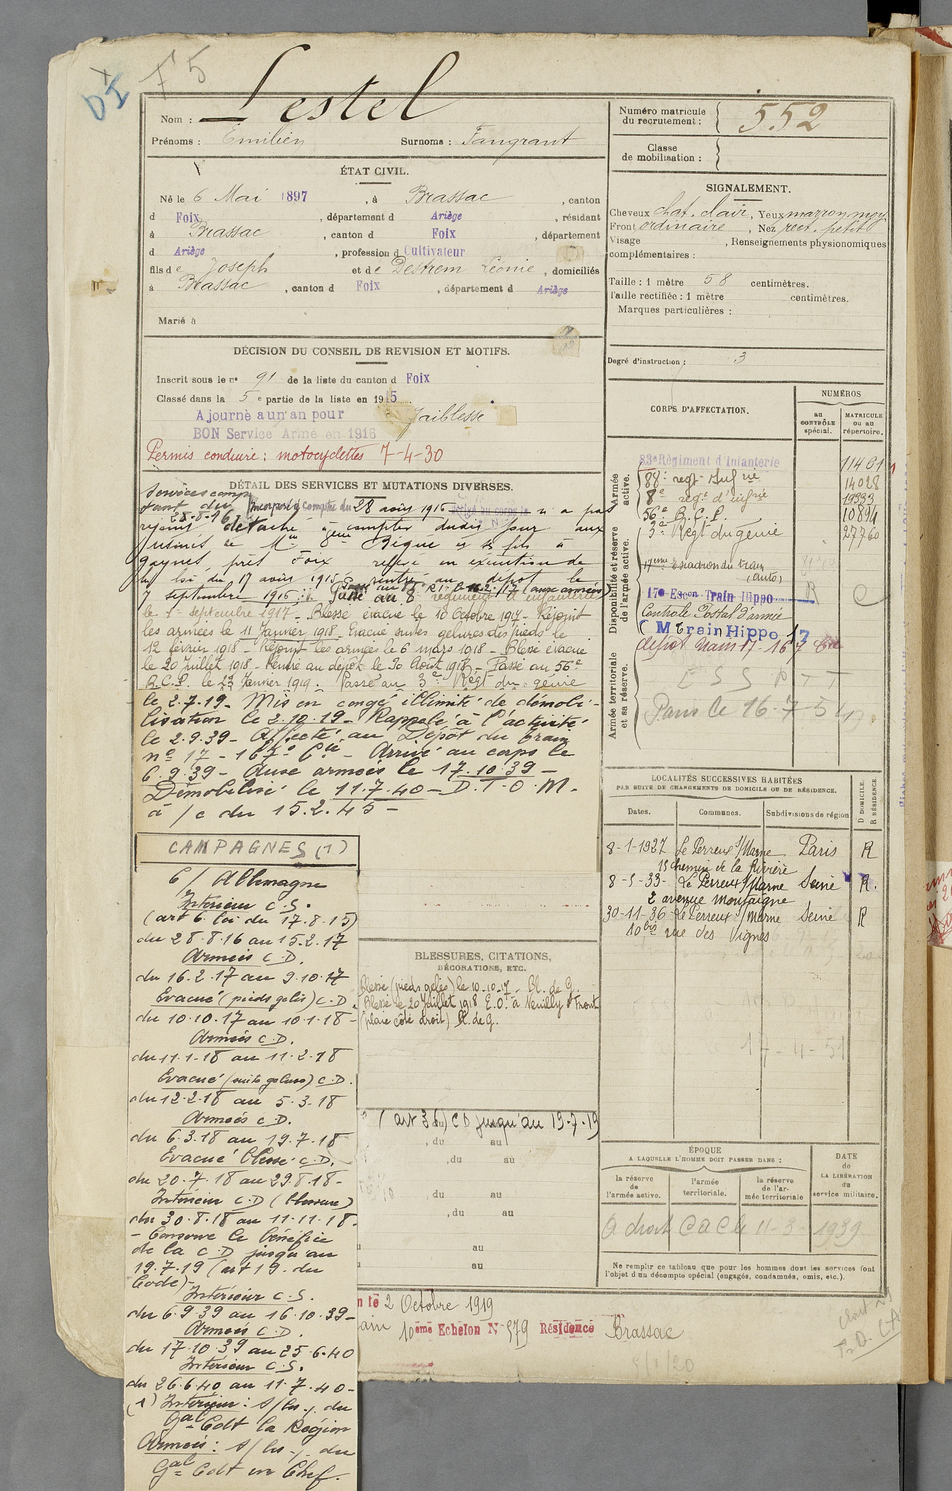 DI
F 5
Nom : Lestel
Prénoms : Emilien Surnoms : Fangrant
ÉTAT CIVIL.
Né le 6 Mai 1897, à Brassac, canton
d Foix, département d Ariège, résidant
à Brassac, canton d Foix, département
d Ariège, profession d Cultivateur
fils de Joseph et de Destrem Léonie, domiciliés
à Brassac, canton d Foix, département d Ariège
Marié à
DÉCISION DU CONSEIL DE REVISION ET MOTIFS.
Inscrit sous le nº 91 de la liste du canton d Foix
Classé dans la 5e partie de la liste en 1915
Ajourné a un an pour faiblesse
BON Service Armé en 1916
Permis conduire : motocyclettes 7-4-30
DÉTAIL DES SERVICES ET MUTATIONS DIVERSES.
Services comp
tant du
28-8-16
Incorporé à compter du 28 août 1916 n'a pas
rejoint détaché à compter dudit jour aux
usines de Bègue et ses fils à
près Foix en exécution de
la loi du 17 août 1915 rentré au dépot le
7 septembre 1916 Passé au 8e régiment d'infanterie (aux armées)
le 1er septembre 1917 - Blessé évacué le 10 Octobre 1917 - Rejoint
les armées le 11 Janvier 1918 - Evacué suites gelures des pieds le
12 février 1918 - Rejoint les armées le 6 mars 1918 - Blessé évacué
le 20 Juillet 1918 - Rentré au dépôt le 30 Août 1918 - Passé au 56e
R.C.P. le 23 Janvier 1919. Passé au 3e Régt du génie
le 2-7-19 - Mis en congé illimité de démobi-
lisation le 2.10.19 - Rappelé à l'activité
le 2.9.39 - Affecté au Dépôt du train
nº 17 - 167e Cie - Arrivé au corps le
6.9.39 - Aux armées le 17.10.39 -
Démobilisé le 11.7.40 - D.T.O.M.
à /c du 15.2.45 -
CAMPAGNES (1)
C/ Allemagne
Intérieur C.S.
(art 6. loi du 17.8.15)
du 28.8.16 au 15.2.17
Armées C.D.
du 16.2.17 au 9.10.17
Evacué (pieds gelés) C.D.
du 10.10.17 au 10.1.18 -
Armées C.D.
du 11.1.18 au 11.2.18
Evacué (suite gelures) C.D.
du 12.2.18 au 5.3.18
Armées C.D.
du 6.3.18 au 19.7.18
Evacué Blessé C.D.
du 20.7.18 au 29.8.18 -
Intérieur C.D (Blessure)
du 30.8.18 au 11.11.18 -
- Conserve le bénéfice
de la C.D jusqu'au
19.7.19 (art 19. du
Code) -
Intérieur C.S.
du 6.9.39 au 16.10.39 -
Armées C.D.
du 17.10.39 au 25.6.40
Intérieur C.S.
du 26.6.40 au 11.7.40 -
(1) Intérieur : s/les ./. du
Gal Cdt la Région
Armées : s/ les ./. du
Gal Cdt en Chef.
BLESSURES, CITATIONS,
DÉCORATIONS, ETC.
Blessé (pieds gelés) le 10-10-17 - Bl. de G.
Blessé le 20 Juillet 1918 E.O. à Neuilly St Front
(plaie côté droit) Bl. de G.
(art 35) CD jusqu'au 19-7-19
, du au
, du au
du au
, du au
au
au
n le 2 Octobre 1919
10ème Echelon Nº 879 Résidence Brassac
Numéro matricule
du recrutement : 552
Classe
de mobilisation :
SIGNALEMENT.
Cheveux chat. clair, Yeux marron moy.
Front ordinaire, Nez rect. petit
Visage , Renseignements physionomiques
complémentaires :
Taille : 1 mètre 58 centimètres.
Taille rectifiée : 1 mètre centimètres.
Marques particulières :
Degré d'instruction : 3
CORPS D'AFFECTATION.
NUMÉROS
au
CONTRÔLE
spécial.
MATRICULE
ou au
répertoire.
Armée
active.
83e Régiment d'Infanterie 11401
88e regt Infrie 14028
8e régt d'infrie 19333
56e R.C.P. 10894
Disponibilité et réserve
de l'armée active.
3e Régt du génie 27760
17ème escadron du train
(auto)
17e Escon Train Hippo R C
Contrôle Postal d'armée
M Train Hippo 17
dépôt train 17 - 167 Cie
Armée territoriale
et sa réserve.
E S S P T T
Paris le 16-7-54
LOCALITÉS SUCCESSIVES HABITÉES
PAR SUITE DE CHANGEMENTS DE DOMICILE OU DE RÉSIDENCE.
Dates. Communes. Subdivisions de région D DOMICILE. R RÉSIDENCE.
8-1-1927 Le Perreux s/Marne Paris R
15 chemin de la Rivière
8-5-33- Le Perreux s/Marne Seine R.
2 avenue Montaigne
30-11-36 Le Perreux s/Marne Seine R
10bis rue des Vignes
17-11-51
ÉPOQUE
A LAQUELLE L'HOMME DOIT PASSER DANS :
DATE
de
LA LIBÉRATION
du
service militaire.
la réserve
de l'armée active.
l'armée
territoriale.
la réserve
de l'ar-
mée territoriale
a droit C a C le 11-3-1939
Ne remplir ce tableau que pour les hommes dont les services font
l'objet d'un décompte spécial (engagés, condamnés, omis, etc.).